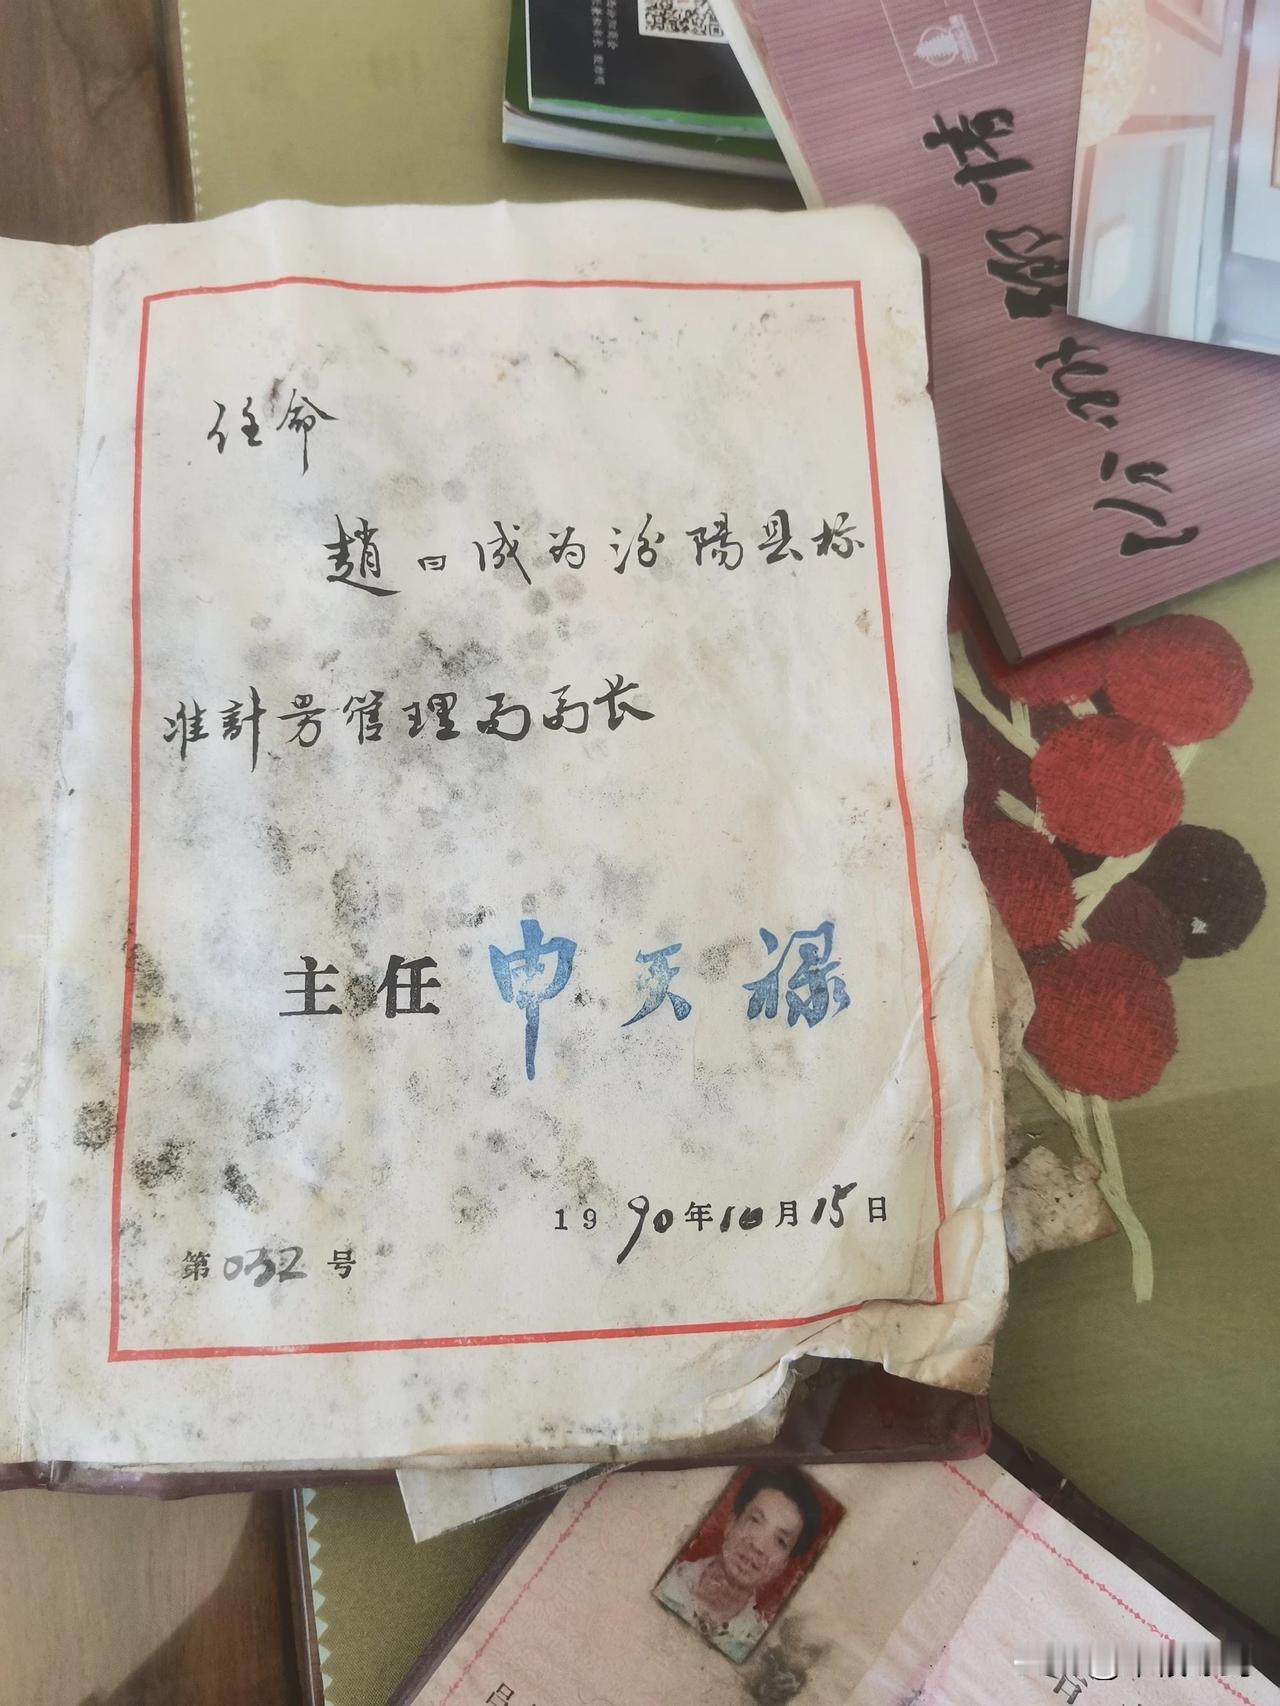 任命
趙日成为汾陽县标
准計男管理局局长
主任 申天禄
1990年10月15日
第032号
情